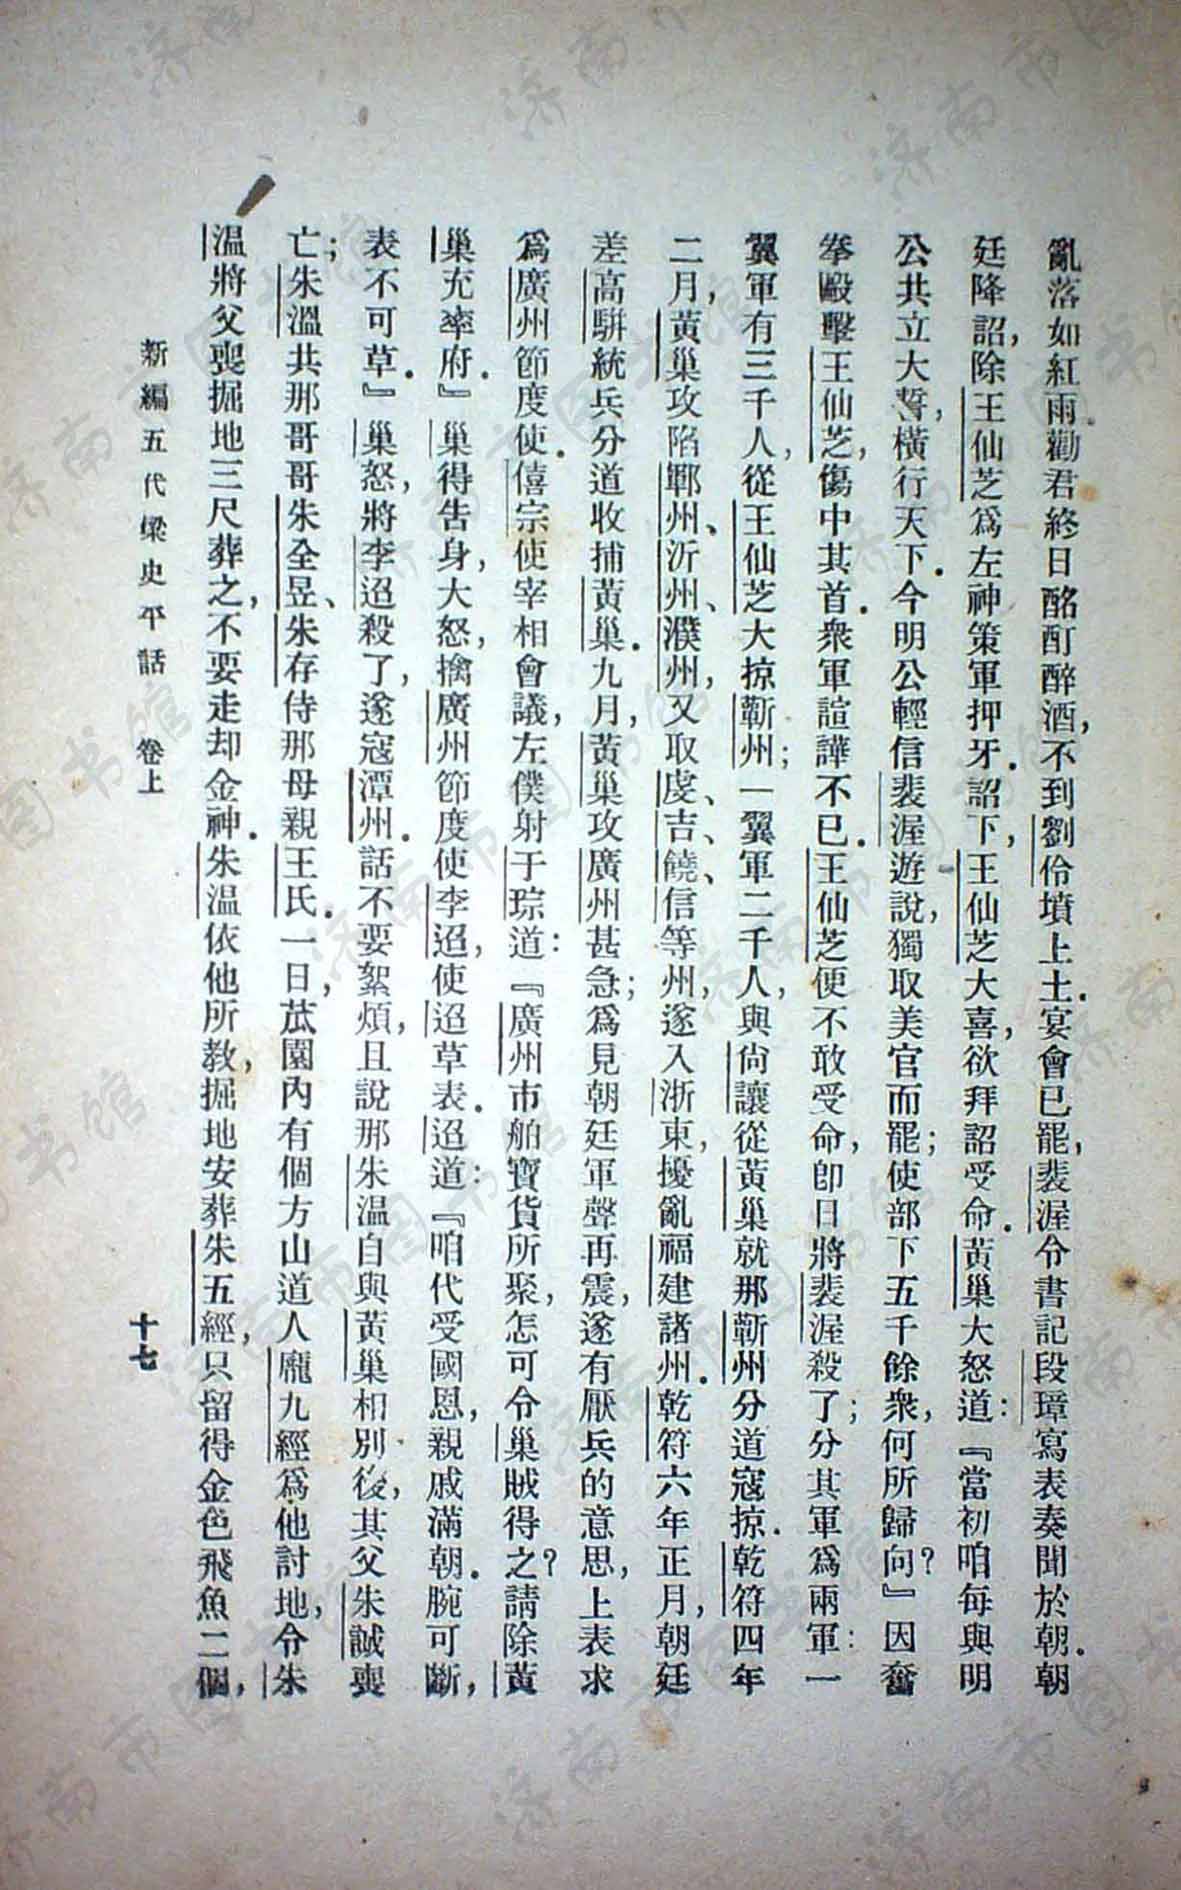 亂落如紅雨勸君終日酩酊醉酒,不到劉伶墳上土.宴會已罷,裴渥令書記段璋寫表奏聞於朝.朝
廷降詔,除王仙芝爲左神策軍押牙.詔下,王仙芝大喜,欲拜詔受命.黃巢大怒道:『當初咱每與明
公共立大誓,橫行天下.今明公輕信裴渥遊說,獨取美官而罷;使部下五千餘衆,何所歸向?』因奮
拳毆擊王仙芝,傷中其首.衆軍諠譁不已.王仙芝便不敢受命,卽日將裴渥殺了;分其軍爲兩軍:一
翼軍有三千人,從王仙芝大掠蘄州;一翼軍二千人,與尙讓從黃巢就那蘄州分道寇掠.乾符四年
二月,黃巢攻陷鄆州、沂州、濮州,又取虔、吉、饒、信等州,遂入浙東,擾亂福建諸州.乾符六年正月,朝廷
差高駢統兵分道收捕黃巢.九月,黃巢攻廣州甚急;爲見朝廷軍聲再震,遂有厭兵的意思,上表求
爲廣州節度使.僖宗使宰相會議,左僕射于琮道:『廣州市舶寶貨所聚,怎可令巢賊得之?請除黃
巢充率府.』巢得告身,大怒,擒廣州節度使李迢,使迢草表.迢道:『咱代受國恩,親戚滿朝.腕可斷,
表不可草.』巢怒,將李迢殺了,遂寇潭州.話不要絮煩,且說那朱温自與黃巢相別後,其父朱誠喪
亡;朱溫共那哥哥朱全昱、朱存侍那母親王氏.一日,莊園內有個方山道人龐九經爲他討地,令朱
溫將父喪掘地三尺葬之,不要走却金神.朱溫依他所教,掘地安葬朱五經,只留得金色飛魚二個,
新編五代梁史平話 卷上
十七